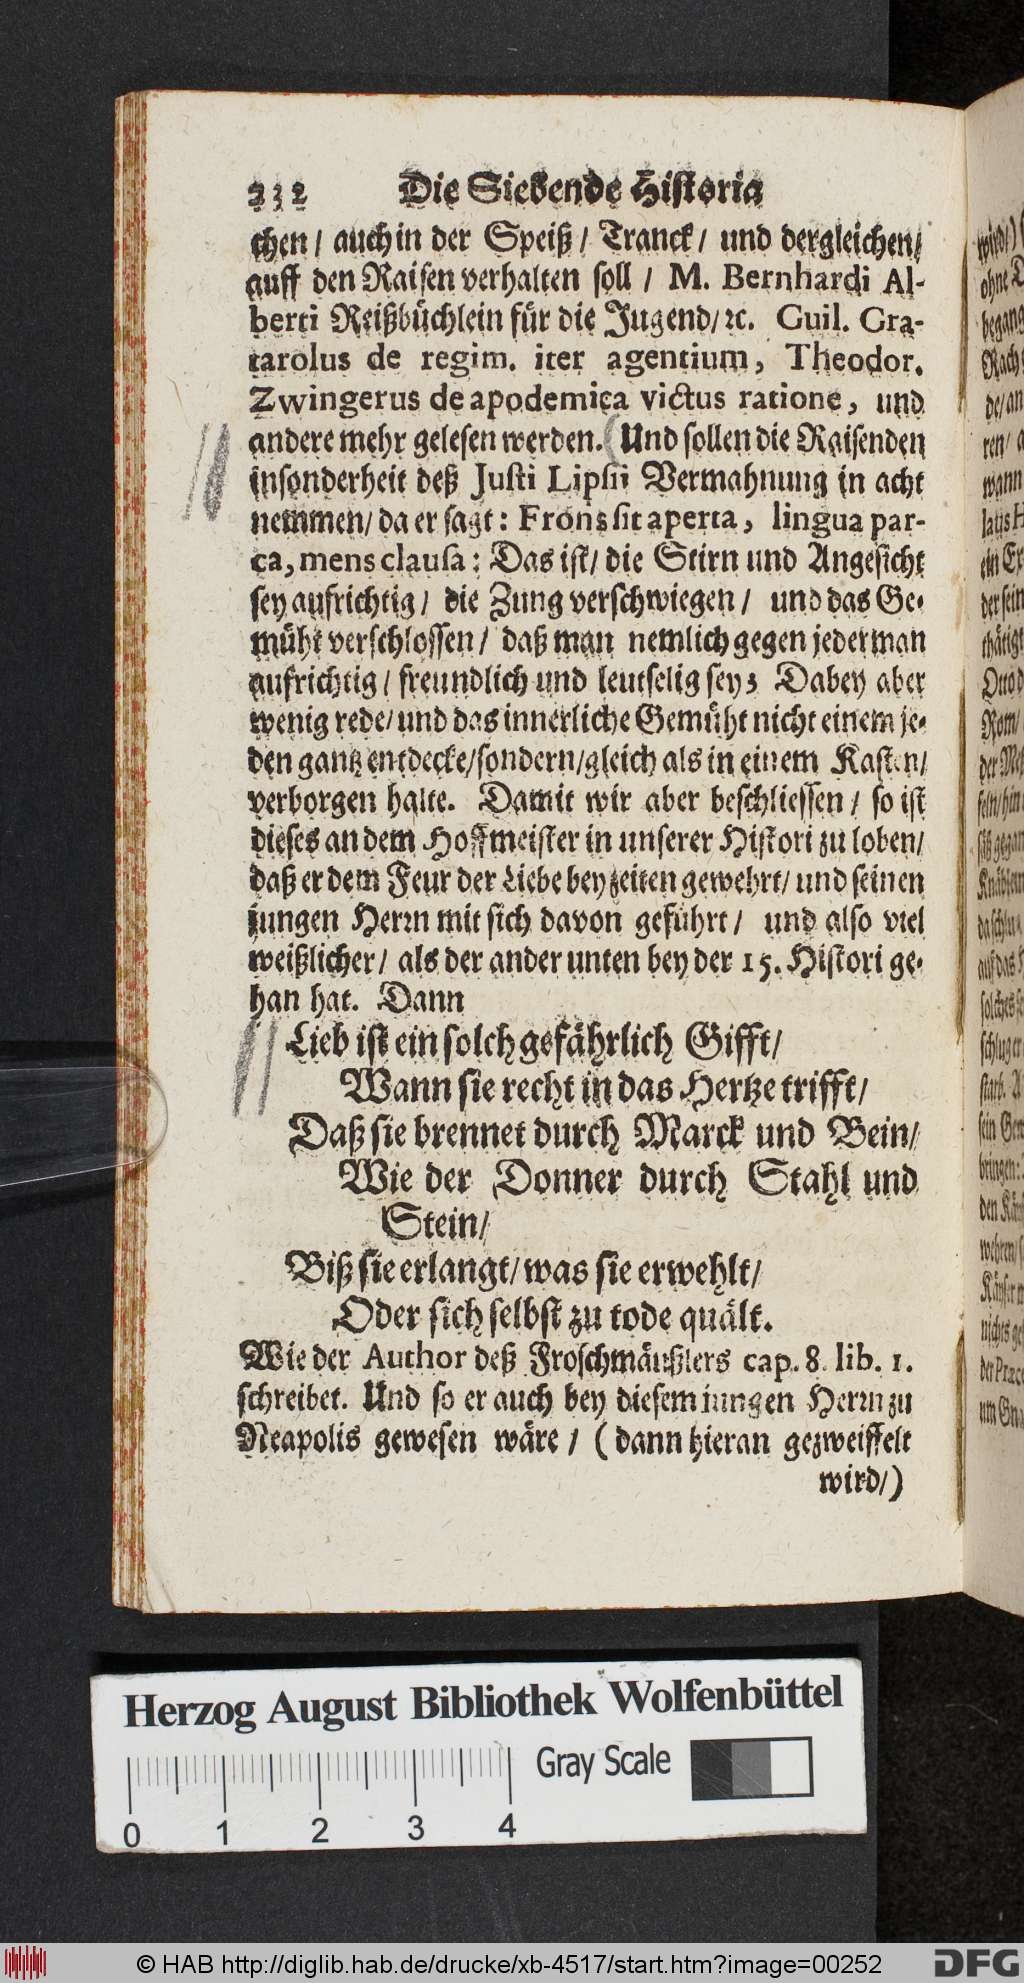 232 Die Siebende Historia
chen / auch in der Speiß / Tranck / und dergleichen/
auff den Raisen verhalten soll / M. Bernhardi Al-
berti Reißbüchlein für die Jugend/ ꝛc. Guil. Gra-
tarolus de regim. iter agentium, Theodor.
Zwingerus de apodemica victus ratione, und
andere mehr gelesen werden. Und sollen die Raisenden
insonderheit deß Justi Lipsii Vermahnung in acht
nemmen/ da er sagt: Frons sit aperta, lingua par-
ca, mens clausa: Das ist/ die Stirn und Angesicht
sey aufrichtig / die Zung verschwiegen / und das Ge-
müht verschlossen / daß man nemlich gegen jederman
aufrichtig / freundlich und leutselig sey; Dabey aber
wenig rede/ und das innerliche Gemüht nicht einem je-
den gantz entdecke/sondern/gleich als in einem Kasten/
verborgen halte. Damit wir aber beschliessen / so ist
dieses an dem Hoffmeister in unserer Histori zu loben/
daß er dem Feur der Liebe bey zeiten gewehrt/ und seinen
jungen Herrn mit sich davon geführt / und also viel
weißlicher/ als der ander unten bey der 15. Histori ge-
han hat. Dann
Lieb ist ein solch gefährlich Gifft/
Wann sie recht in das Hertze trifft/
Daß sie brennet durch Marck und Bein/
Wie der Donner durch Stahl und
Stein/
Biß sie erlangt/ was sie erwehlt/
Oder sich selbst zu tode quält.
Wie der Author deß Froschmäußlers cap. 8. lib. 1.
schreibet. Und so er auch bey diesem jungen Herrn zu
Neapolis gewesen wäre / (dann hieran gezweiffelt
wird/)
wird/)
ohne
begang
Rach
de/ an
ren/
wann
ein
der sein
thätig
Otto
Rom/
auf das
solches
schlug er
starb.
sein
bringen:
nichts
um
Herzog August Bibliothek Wolfenbüttel
Gray Scale
0 1 2 3 4
© HAB http://diglib.hab.de/drucke/xb-4517/start.htm?image=00252
DFG